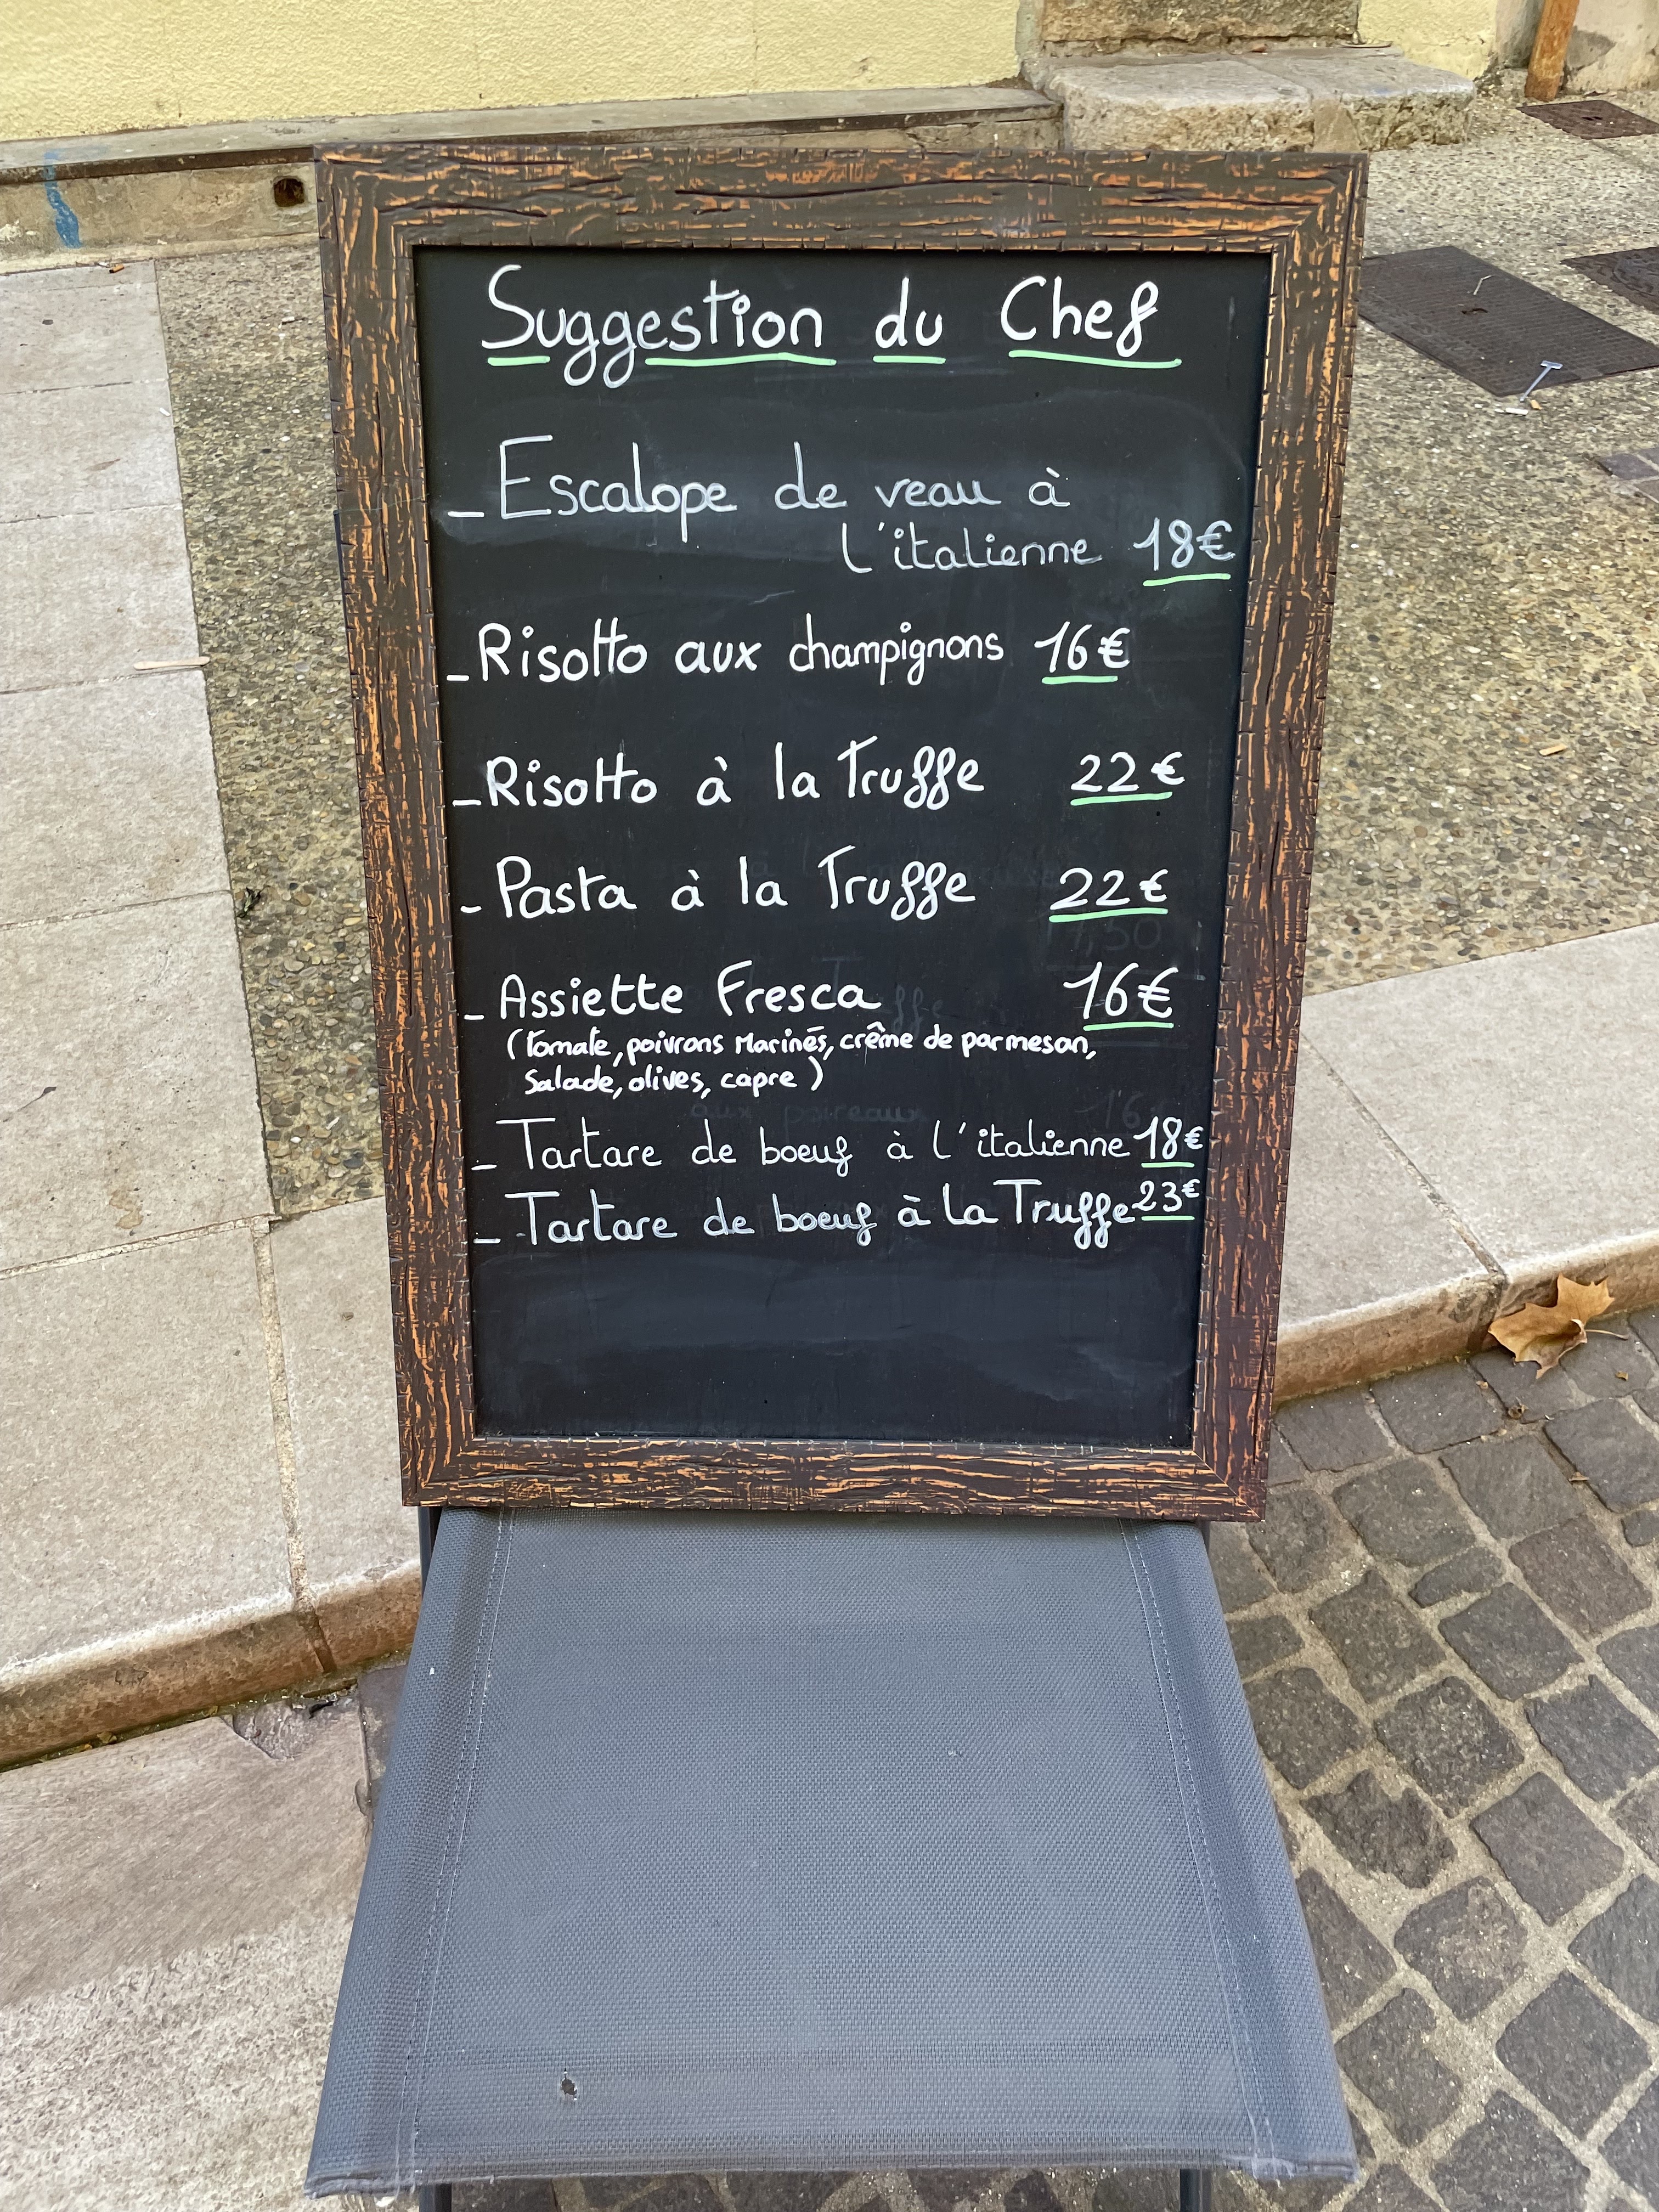 Suggestion du Chef
_ Escalope de veau à
l'italienne 18€
_ Risotto aux champignons 16€
_ Risotto à la Truffe 22€
- Pasta à la Truffe 22€
_ Assiette Fresca 16€
(tomate, poivrons Marinés, crême de parmesan,
Salade, olives, capre)
_ Tartare de boeuf à l'italienne 18€
_ Tartare de boeuf à la Truffe 23€